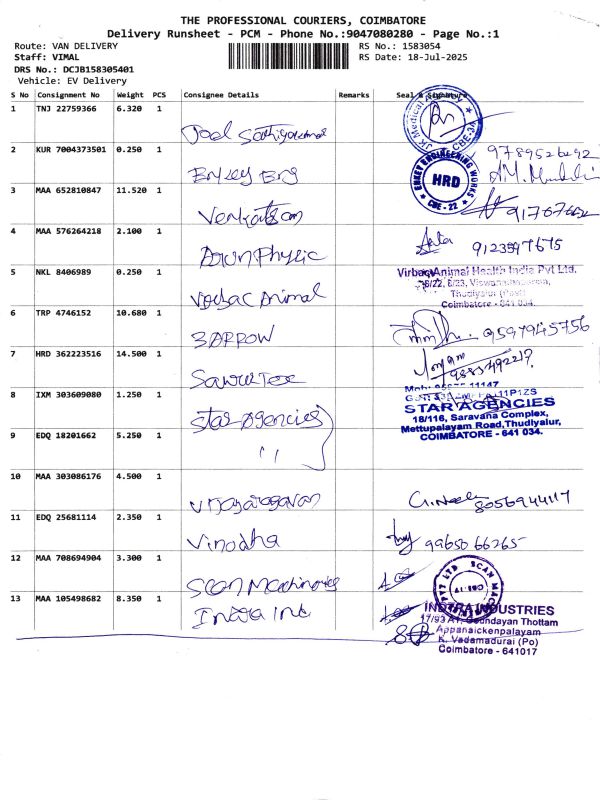 THE PROFESSIONAL COURIERS, COIMBATORE
Delivery Runsheet - PCM - Phone No.:9047080280 - Page No.:1
Route: VAN DELIVERY
RS No.: 1583054
Staff: VIMAL
RS Date: 18-Jul-2025
DRS No.: DCJB158305401
Vehicle: EV Delivery
S No Consignment No Weight PCS Consignee Details Remarks Seal & Signature
1 TNJ 22759366 6.320 1
Joel
JK Medical CBE-
2 KUR 7004373501 0.250 1
Enkey Eng
9789526292
ENKEY ENGINEERING WORKS HRD CBE - 22
3 MAA 652810847 11.520 1
Venkatesan
4 MAA 576264218 2.100 1
Arun Physic
9123597675
5 NKL 8406989 0.250 1
Virbac Animal
Virbac Animal Health India Pvt Ltd.
6/22, 6/23, Viswanathapuram,
Thudiyalur (Post)
Coimbatore - 641 034.
6 TRP 4746152 10.680 1
3 ARROW
9597945756
7 HRD 362223516 14.500 1
9883492217
8 IXM 303609080 1.250 1
Star Agencies
11147
11P1ZS
STAR AGENCIES
18/116, Saravana Complex,
Mettupalayam Road,Thudiyalur,
COIMBATORE - 641 034.
9 EDQ 18201662 5.250 1
"
10 MAA 303086176 4.500 1
Vijayaragavan
8056944117
11 EDQ 25681114 2.350 1
Vinodha
9965066265
12 MAA 708694904 3.300 1
Scan Machineries
13 MAA 105498682 8.350 1
Indra Ind
INDTRA INDUSTRIES
17/93 A1, Goundayan Thottam
Appanaickenpalayam
K. Vadamadurai (Po)
Coimbatore - 641017